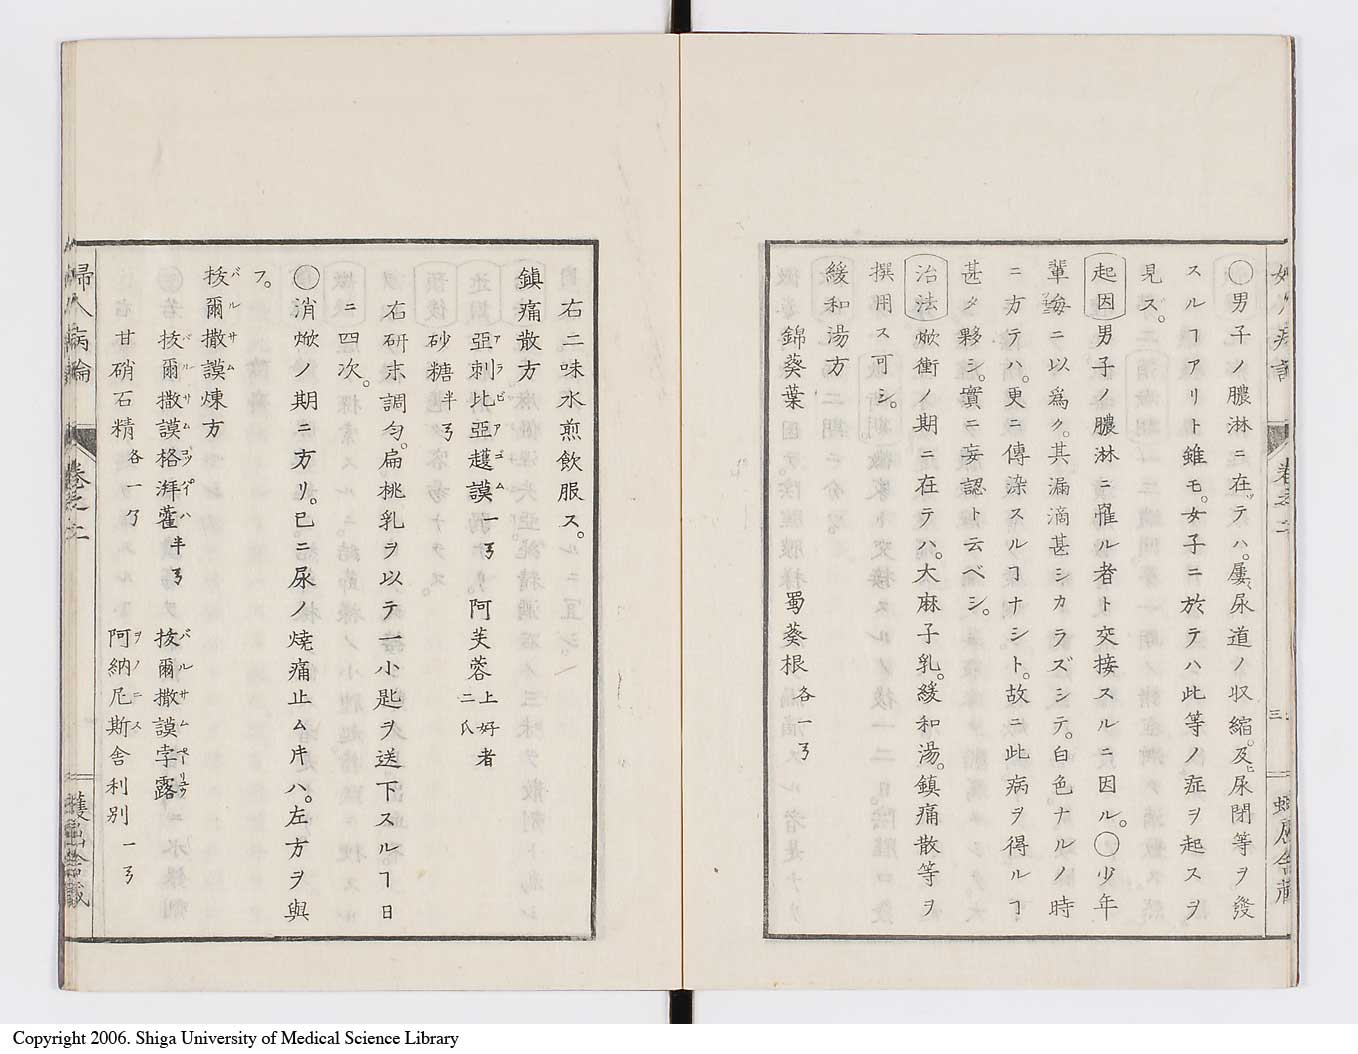 〇男子ノ膿淋ニ在テハ。屢尿道ノ収縮。及尿閉等ヲ發
スルヿアリト雖モ。女子ニ於テハ此等ノ症ヲ起スヲ
見ス。
起因 男子ノ膿淋ニ罹ル者ト交接スルニ因ル。〇少年
輩毎ニ以爲ク。其漏滴甚シカラズシテ。白色ナルノ時
ニ方テハ。更ニ傳染スルヿナシト。故ニ此病ヲ得ルヿ
甚タ夥シ。實ニ妄認ト云ベシ。
治法 焮衝ノ期ニ在テハ。大麻子乳。緩和湯。鎮痛散等ヲ
撰用ス可シ。
緩和湯方
錦葵葉 蜀葵根 各一ヲ
右二味水煎飲服ス。
鎮痛散方
亞刺比亞護謨 一ヲ 阿芙蓉 上好者 二爪
砂糖 半ヲ
右研末調匀。扁桃乳ヲ以テ一小匙ヲ送下スルヿ日
ニ四次。
〇消焮ノ期ニ方リ。已ニ尿ノ燒痛止ム片ハ。左方ヲ與
フ。
拔爾撒謨煉方
拔爾撒謨格湃藿 半ヲ 拔爾撒謨孛露
甘硝石精 各一ヲ 阿納尼斯舍利別 一ヲ
婦人病論 卷之二
Copyright 2006. Shiga University of Medical Science Library